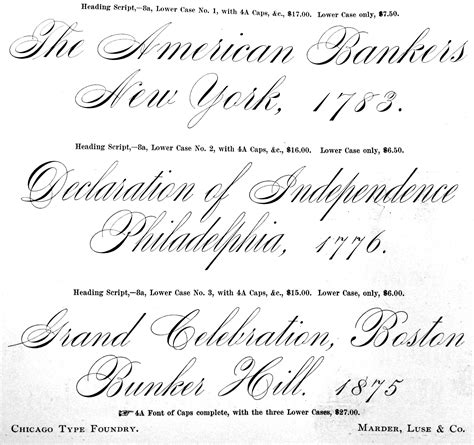 Heading Script,—8a, Lower Case No. 1, with 4A Caps, &c., $17.00. Lower Case only, $7.50.
The American Bankers
New York, 1783.
Heading Script,—8a, Lower Case No. 2, with 4A Caps, &c., $16.00. Lower Case only, $6.50.
Declaration of Independence
Philadelphia, 1776.
Heading Script,—8a, Lower Case No. 3, with 4A Caps, &c., $15.00. Lower Case, only, $6.00.
Grand Celebration, Boston
Bunker Hill. 1875
☞ 4A Font of Caps complete, with the three Lower Cases, $27.00.
Chicago Type Foundry. Marder, Luse & Co.